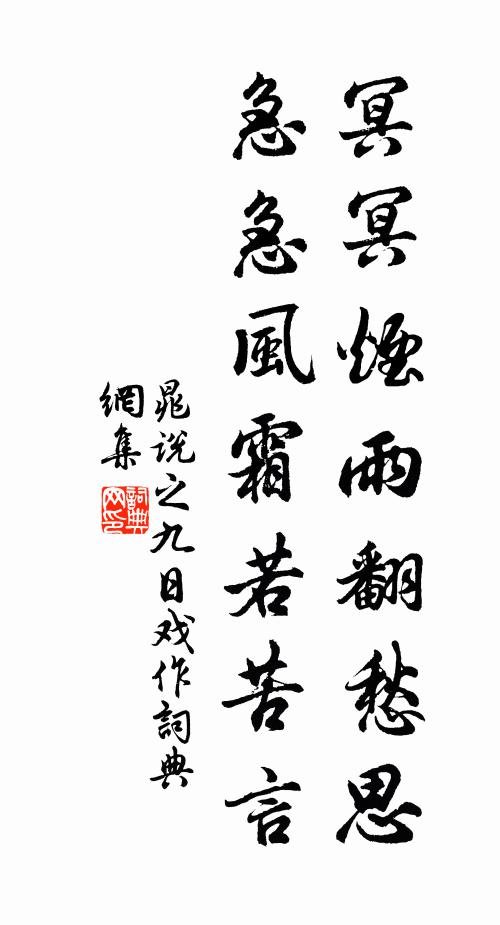 冥冥煙雨翻愁思
急急風霜若苦言
晁說之九日戏作詞典
網集
詞典
网印